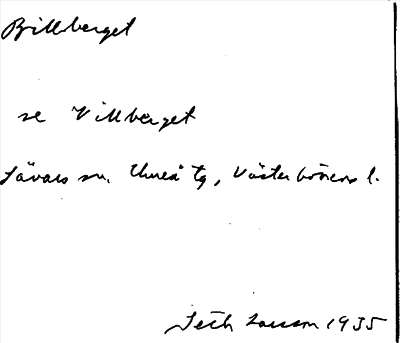 Billberget
se Villberget
Sävars sn. Umeå tg, Västerbottens l.
Seth Larsson 1935